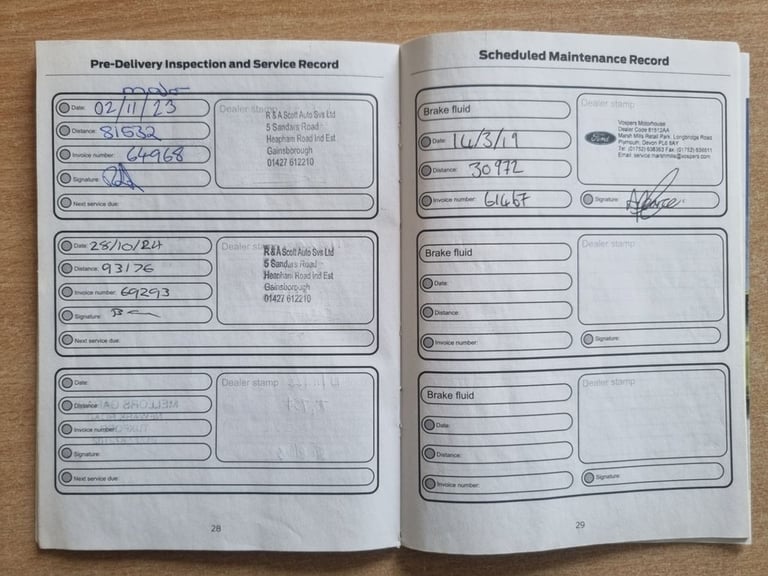 Pre-Delivery Inspection and Service Record
Date: 02/11/23
Distance: 81532
Invoice number: 64968
Signature:
Next service due:
Dealer stamp
R & A Scott Auto Svs Ltd
5 Sandars Road
Heapham Road Ind Est
Gainsborough
01427 612210
Date: 28/10/24
Distance: 93176
Invoice number: 69293
Signature:
Next service due:
Dealer stamp
R & A Scott Auto Svs Ltd
5 Sandars Road
Heapham Road Ind Est
Gainsborough
01427 612210
Date:
Distance:
Invoice number:
Signature:
Next service due:
Dealer stamp
28
Scheduled Maintenance Record
Brake fluid
Date: 14/3/19
Distance: 30972
Invoice number: 61467
Dealer stamp
Ford
Vospers Motorhouse
Dealer Code 61512AA
Marsh Mills Retail Park, Longbridge Road
Plymouth, Devon PL6 8AY
Tel: (01752) 636363 Fax: (01752) 636611
Email: service.marshmills@vospers.com
Signature:
Brake fluid
Date:
Distance:
Invoice number:
Dealer stamp
Signature:
Brake fluid
Date:
Distance:
Invoice number:
Dealer stamp
Signature:
29